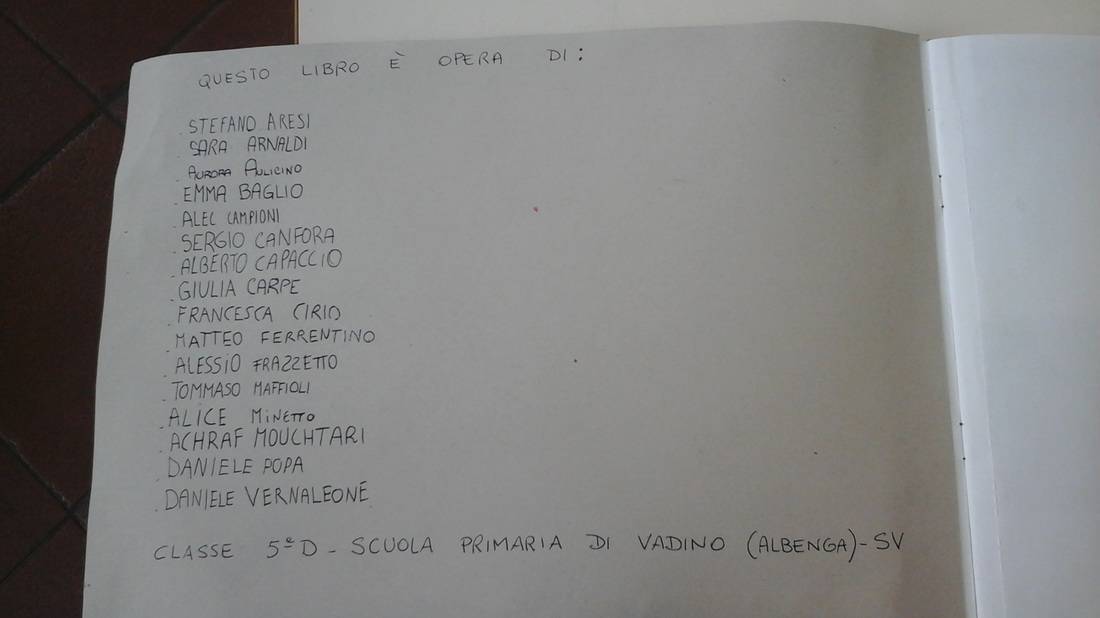 QUESTO LIBRO È OPERA DI:
. STEFANO ARESI
. SARA ARNALDI
. AURORA AULICINO
. EMMA BAGLIO
. ALEC CAMPIONI
. SERGIO CANFORA
. ALBERTO CAPACCIO
. GIULIA CARPE
. FRANCESCA CIRIO
. MATTEO FERRENTINO
. ALESSIO FRAZZETTO
. TOMMASO MAFFIOLI
. ALICE MINETTO
. ACHRAF MOUCHTARI
. DANIELE POPA
. DANIELE VERNALEONE
CLASSE 5ª D - SCUOLA PRIMARIA DI VADINO (ALBENGA) - SV